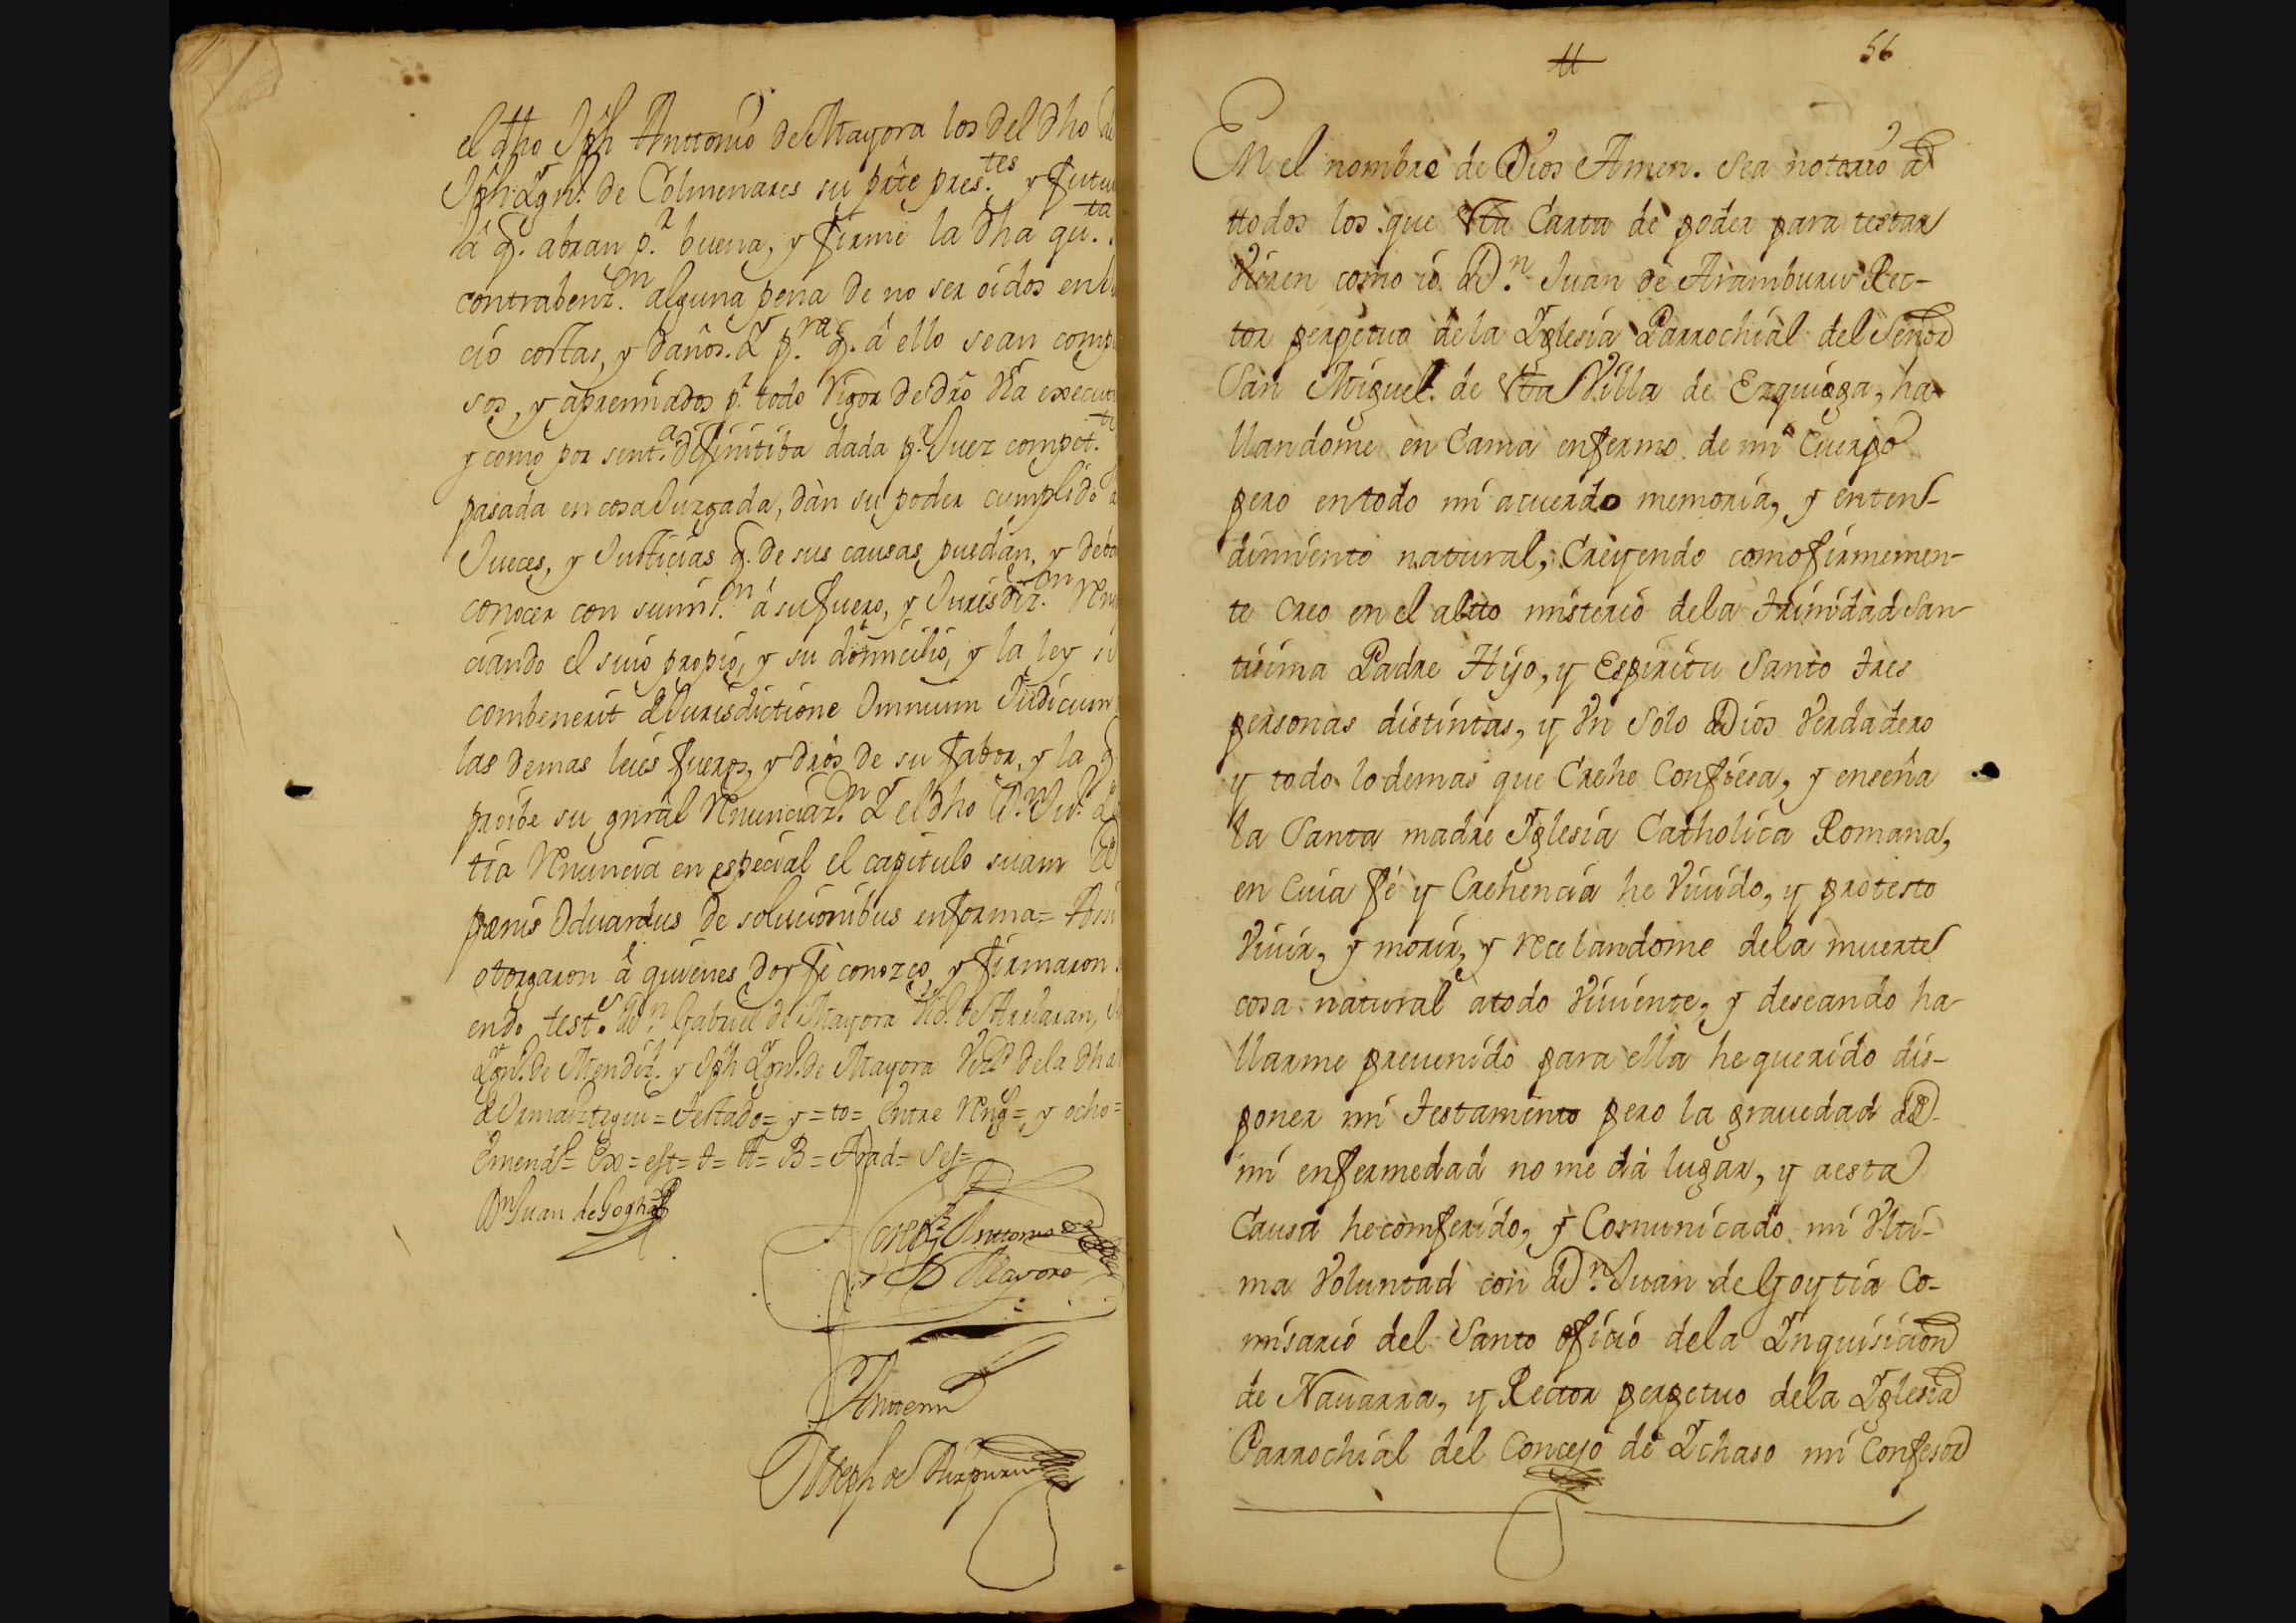 el dho Jph Anttonio de Mayora los del dho
Jph Ygnº de Colmenares su prte pres.tes y futu
â q. abran p.r buena, y firme la dha qu.ta
contrabenz.on alguna pena de no ser oidos en
cio costas, y daños. Y p.ra q. â ello sean comp
sos, y apremiados p.r todo Vigor de dro Via execu
y como por sent.a difinitiba dada p.r Juez compet.te
pasada en cosa Juzgada, dàn su poder cumplido
Jueces, y Justicias q. de sus causas puedan, y deba
conocer con sumis.on â su fuero, y Jurisdiz.on Renu
ciando el suio propio, y su domicilio, y la ley si
combenerit de Jurisdictione Omnium Judicum
las demas leies fueros, y dros de su fabor, y la q
proibe su gnral Renunciaz.n Y el dho D.n Ju.º
tia Renuncia en especial el capitulo suam de
pænis Oduardus de solucionibus en forma= Assi
otorgaron â quienes doy feè conozco, y firmaron
endo test.s D.n Gabriel de Mayora de Arrlaran,
Ygn.º de Mendiz.l y Jph Ygn.º de Mayora Vez.s de la dha
de Ormaiztegui = Testado= y = to= Entre Reng= y ocho=
Emend.º= Ex= est= t= tt= B=
Dn Juan de Goytia
Joseph Anttonio de
Mayora
Antemi
Joseph de Aurpuru
56
En el nombre de Dios Amen. Sea notorio a
ttodos los que Vta Carta de poder para testar
Vieren como io D.n Juan de Aramburu Rec-
tor perpetuo dela Yglesia Parrochial del Señor
San Miguel de Vta Villa de Ezquioga, ha-
llandome en Cama enfermo de mi Cuerpo
pero en todo mi acuerdo memoria, y enten-
dimiento natural, Creyendo como firmemen-
te creo en el altto misterio dela Trinidad San
tisima Padre Hijo, y Espiritu Santo tres
personas distintas, y Vn Solo Dios Verdadero
y todo lo demas que Crehe Confiesa, y enseña
la Santa madre Yglesia Catholica Romana,
en Cuia fé y Crehencia he Viuido, y protesto
Viuir, y morir, y Recelandome dela muerte
cosa natural a todo Viuiente, y deseando ha-
llarme preuenido para ella he querido dis-
poner mi testamento pero la grauedad de
mi enfermedad no me dà lugar, y aesta
Causa he comferido, y Comunicado mi Vlti-
ma Voluntad con D.n Juan de Goytia Co-
misario del Santo oficio dela Ynquisicion
de Nauarra, y Rector perpetuo dela Yglesia
Parrochial del Concejo de Ychaso mi Confesor